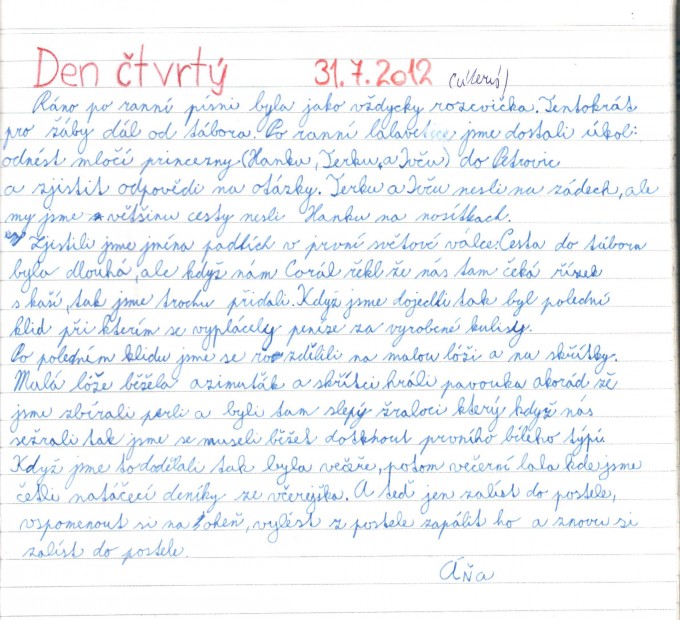 Den čtvrtý 31.7.2012 (úterý)
Ráno po ranní písni byla jako vždycky rozcvička. Tentokrát
pro žáby dál od tábora. Po ranní lala jsme dostali úkol:
odnést mločí princezny (Hanku, Terku, a Ivču) do Petrovic
a zjistit odpovědi na otázky. Terku a Ivču nesli na zádech, ale
my jsme většinu cesty nesli Hanku na nosítkach.
Zjistili jsme jména padlích v první světové válce. Cesta do tábora
byla dlouhá, ale když nám Corál řekl že nás tam čeká řízek
s kaší, tak jsme trochu přidali. Když jsme dojedli tak byl polední
klid při kterím se vyplácely peníze za vyrobené kulisy.
Po poledním klidu jsme se rozdílili na malou lóži a na skřítky.
Malá lóže běžela azimuťák a skřítci hráli pavouka akorád žě
jsme zbírali perli a byli tam slepý žraloci který když nás
sežrali tak jsme se museli běžet dotkhout prvního bílého týpů
Když jsme to dodělali tak byla večeře, potom večerní lala kde jsme
četli natáčecí deníky ze včerejška. A teď jen zalíst do postele,
vspomenout si na oheň, vylést z postele zapálit ho a znovu si
zalíst do postele.
Áňa